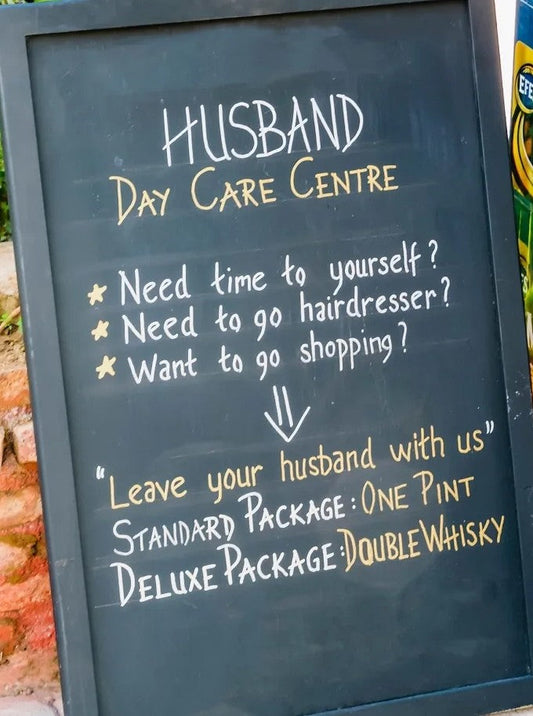 HUSBAND
DAY CARE CENTRE
Need time to yourself?
Need to go hairdresser?
Want to go shopping?
"Leave your husband with us"
STANDARD PACKAGE: ONE PINT
DELUXE PACKAGE: DOUBLE WHISKY